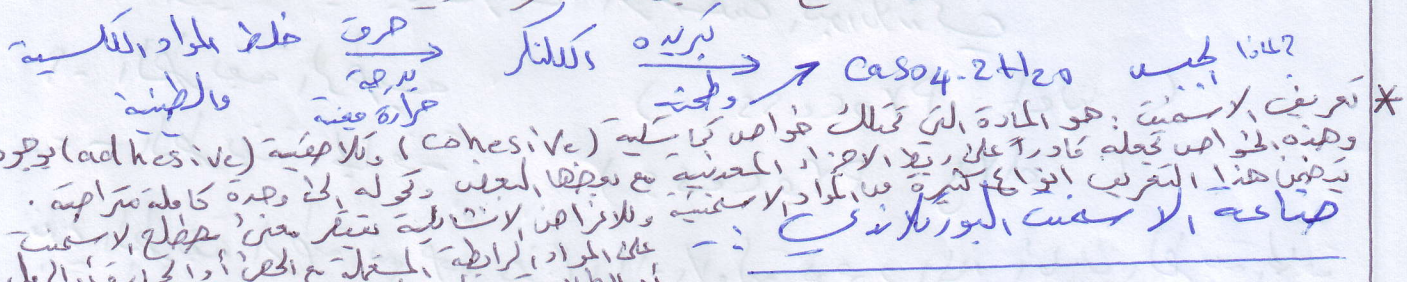 خلط المواد الكلسية حرق الكلنكر تبريده CaSO4.2H2O لماذا الجبس؟
والطينية بدرجة حرارة معينة وطحنه
* تعريف الاسمنت: هو المادة التي تمتلك خواص تماسكية (cohesive) وتلاصقية (adhesive) بوجود
وهذه الخواص تجعله قادراً على ربط الاجزاء المعدنية مع بعضها البعض وتحوله الى وحدة كاملة متراصة.
يتضمن هذا التعريف انواع كثيرة من المواد الاسمنتية وللاغراض الانشائية يقتصر معنى مصطلح الاسمنت
صناعة الاسمنت البورتلاندي :-
على المواد الرابطة المستعملة مع الحصى أو الحجارة أو الرمل